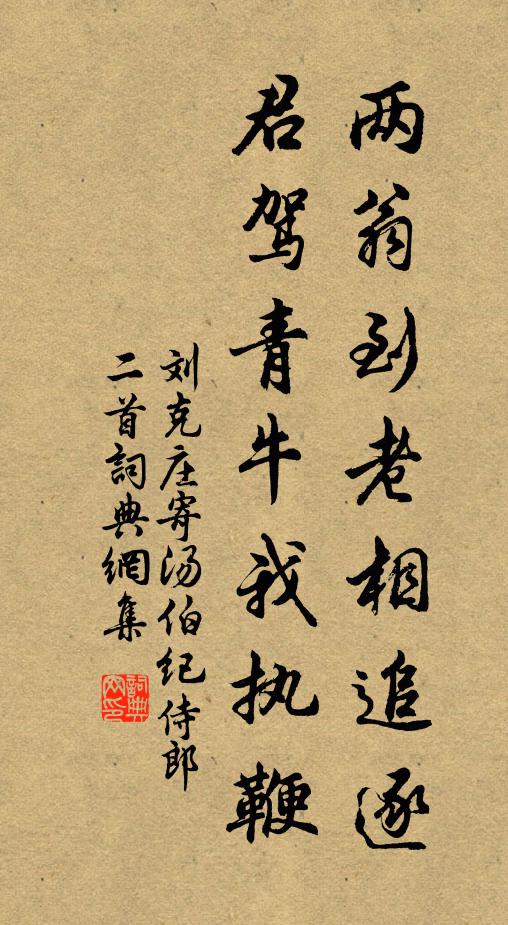 两翁到老相追逐
君驾青牛我执鞭
刘克庄寄汤伯纪侍郎
二首詞典網集
詞典
网印